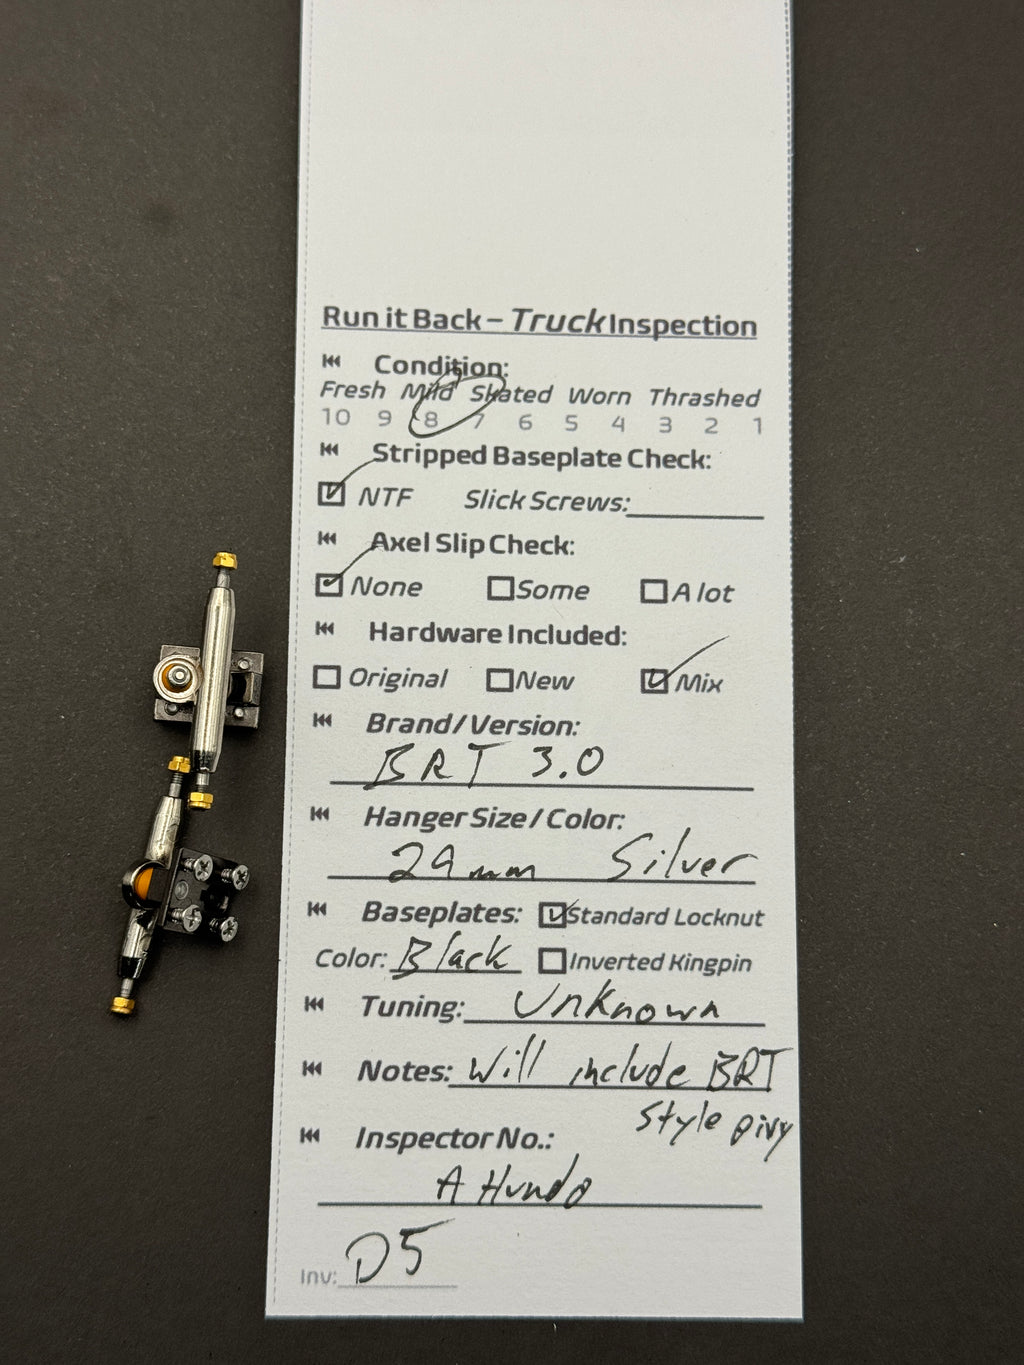 Run it Back – Truck Inspection
Condition:
Fresh Mild Skated Worn Thrashed
10 9 8 7 6 5 4 3 2 1
Stripped Baseplate Check:
NTF Slick Screws:
Axel Slip Check:
None Some A lot
Hardware Included:
Original New Mix
Brand/Version:
BRT 3.0
Hanger Size/Color:
29mm Silver
Baseplates: Standard Locknut
Color: Black Inverted Kingpin
Tuning: Unknown
Notes: Will include BRT
Style pivy
Inspector No.:
A Hundo
Inv: D5